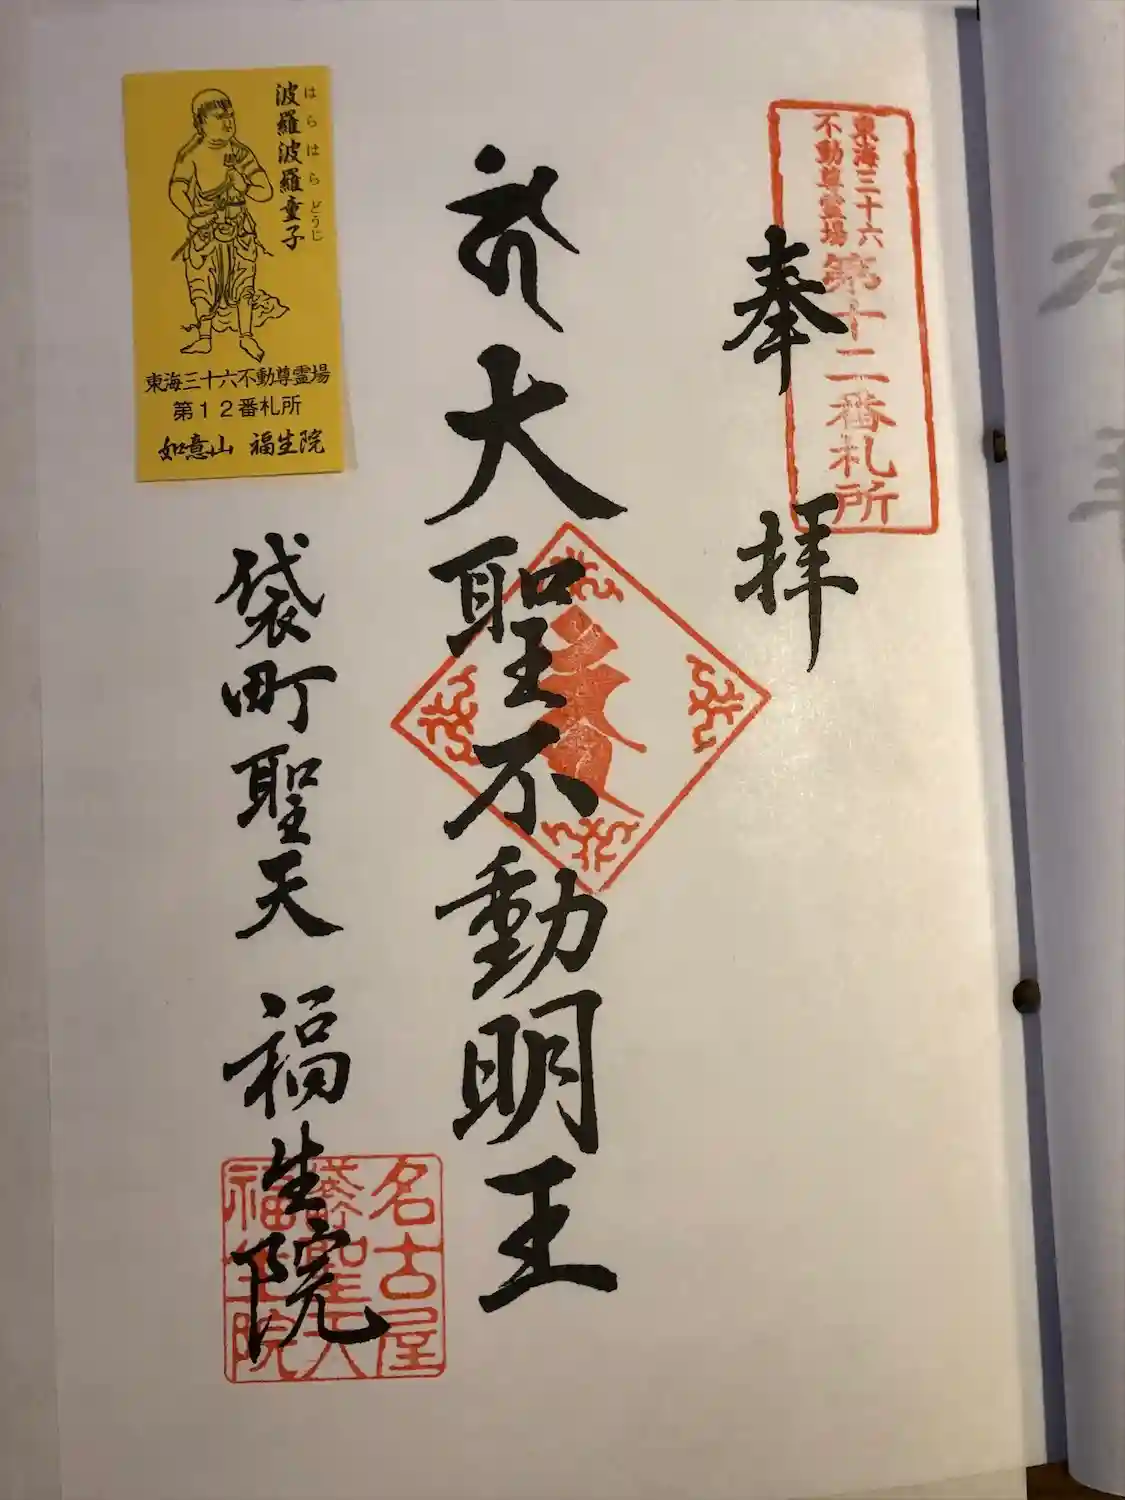 東海三十六
不動尊霊場
第十二番札所
奉拝
大聖不動明王
袋町聖天 福生院
名古屋
袋町聖天
福生院
波羅波羅童子
はらはらどうじ
東海三十六不動尊霊場
第12番札所
如意山 福生院